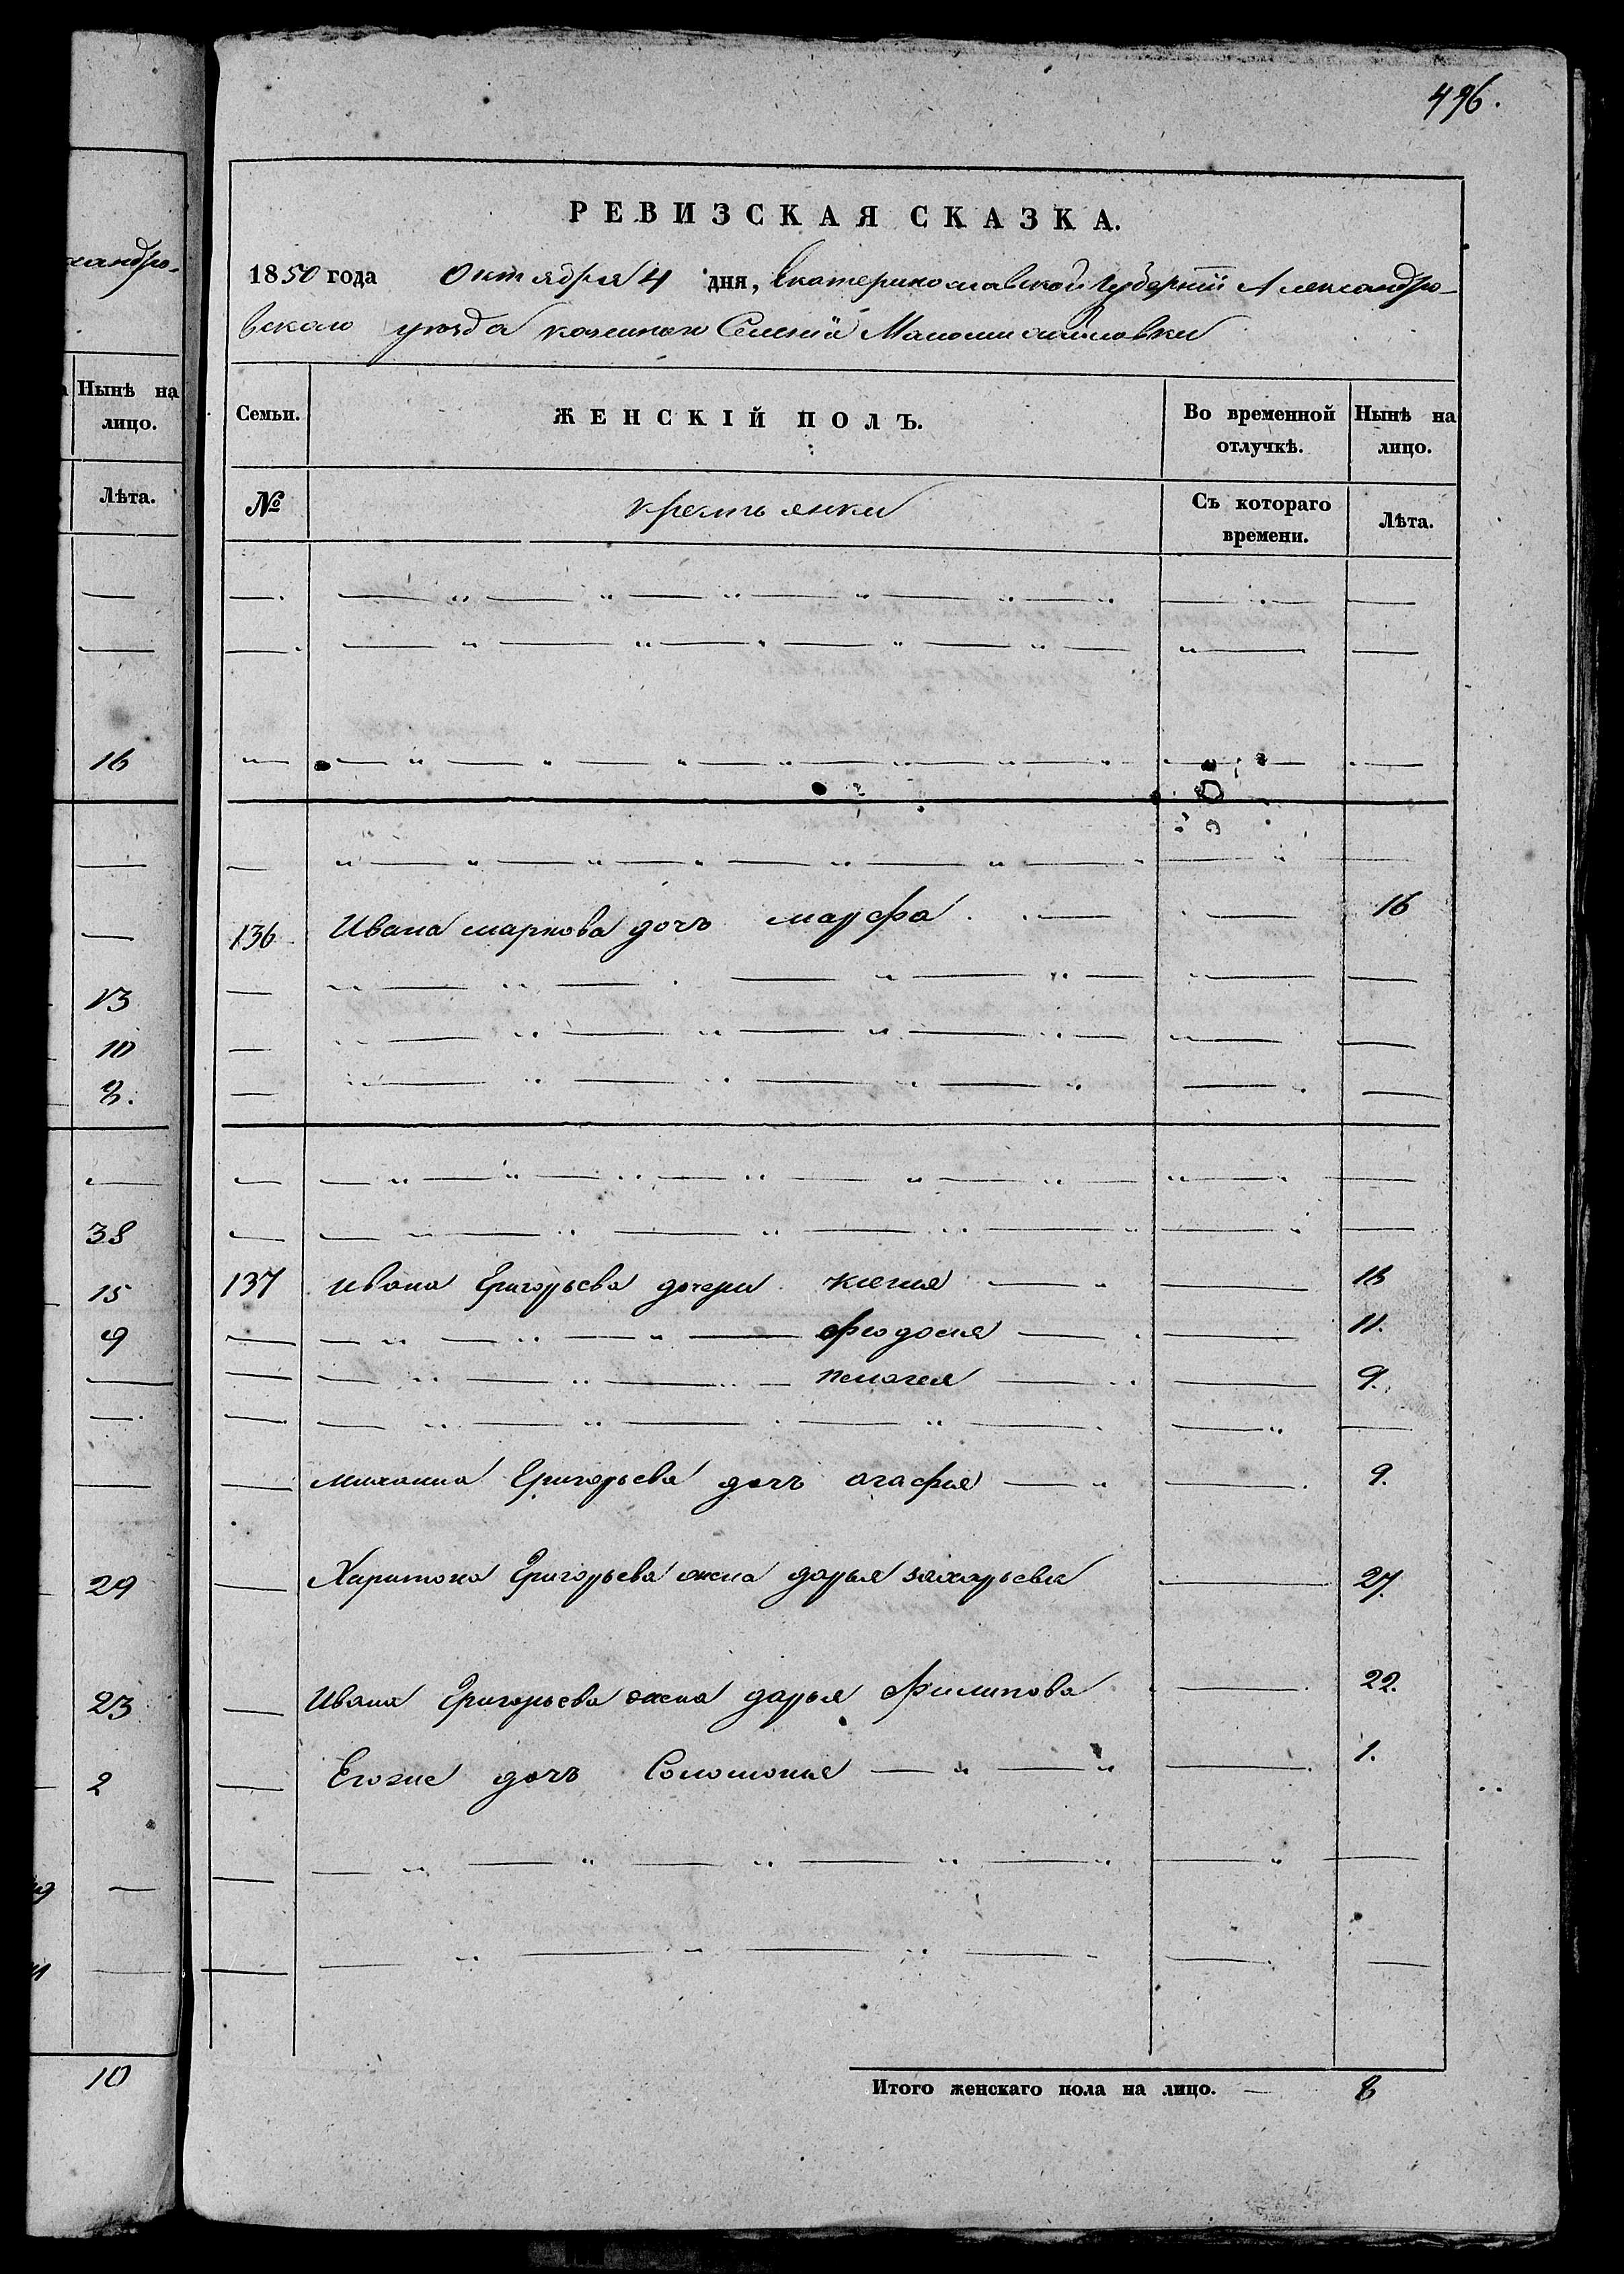 496.
хандро-
Нынѣ на
лицо.
Лѣта.
16
13
10
8.
38
15
9
29
23
2
10
РЕВИЗСКАЯ СКАЗКА.
1850 года Октября 4 дня, Екатеринославской Губерніи Александро-
вскаго уезда казенного Селенія Маломихайловки
Семьи. ЖЕНСКІЙ ПОЛЪ. Во временной отлучкѣ. Нынѣ на лицо.
№ крестьянки Съ котораго времени. Лѣта.
136 Ивана маркова дочъ марфа. 16
137 ивана Григорьева дочери ксения
феодосия 11.
пелагея 9.
михаила Григорьева дочъ агафия 9.
Харитона Григорьева жена дарья захарьева 27.
Ивана Григорьева жена дарья Филипова 22.
Егоже дочъ Соломония 1.
Итого женскаго пола на лицо. — 8